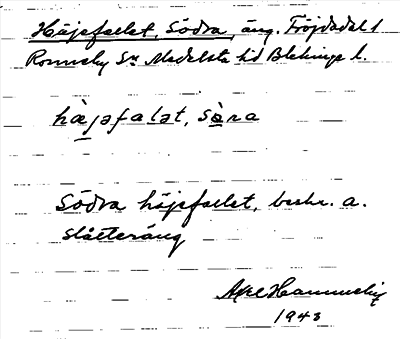 Höjefallet, Södra, äng. Fröjdadal 1
Ronneby Sn Medelsta hd Blekinge l.
hø̀jəfalət, sø̀ra
Södra höjefallet, beskr. a.
slåtteräng
Axel Hammeby
1943